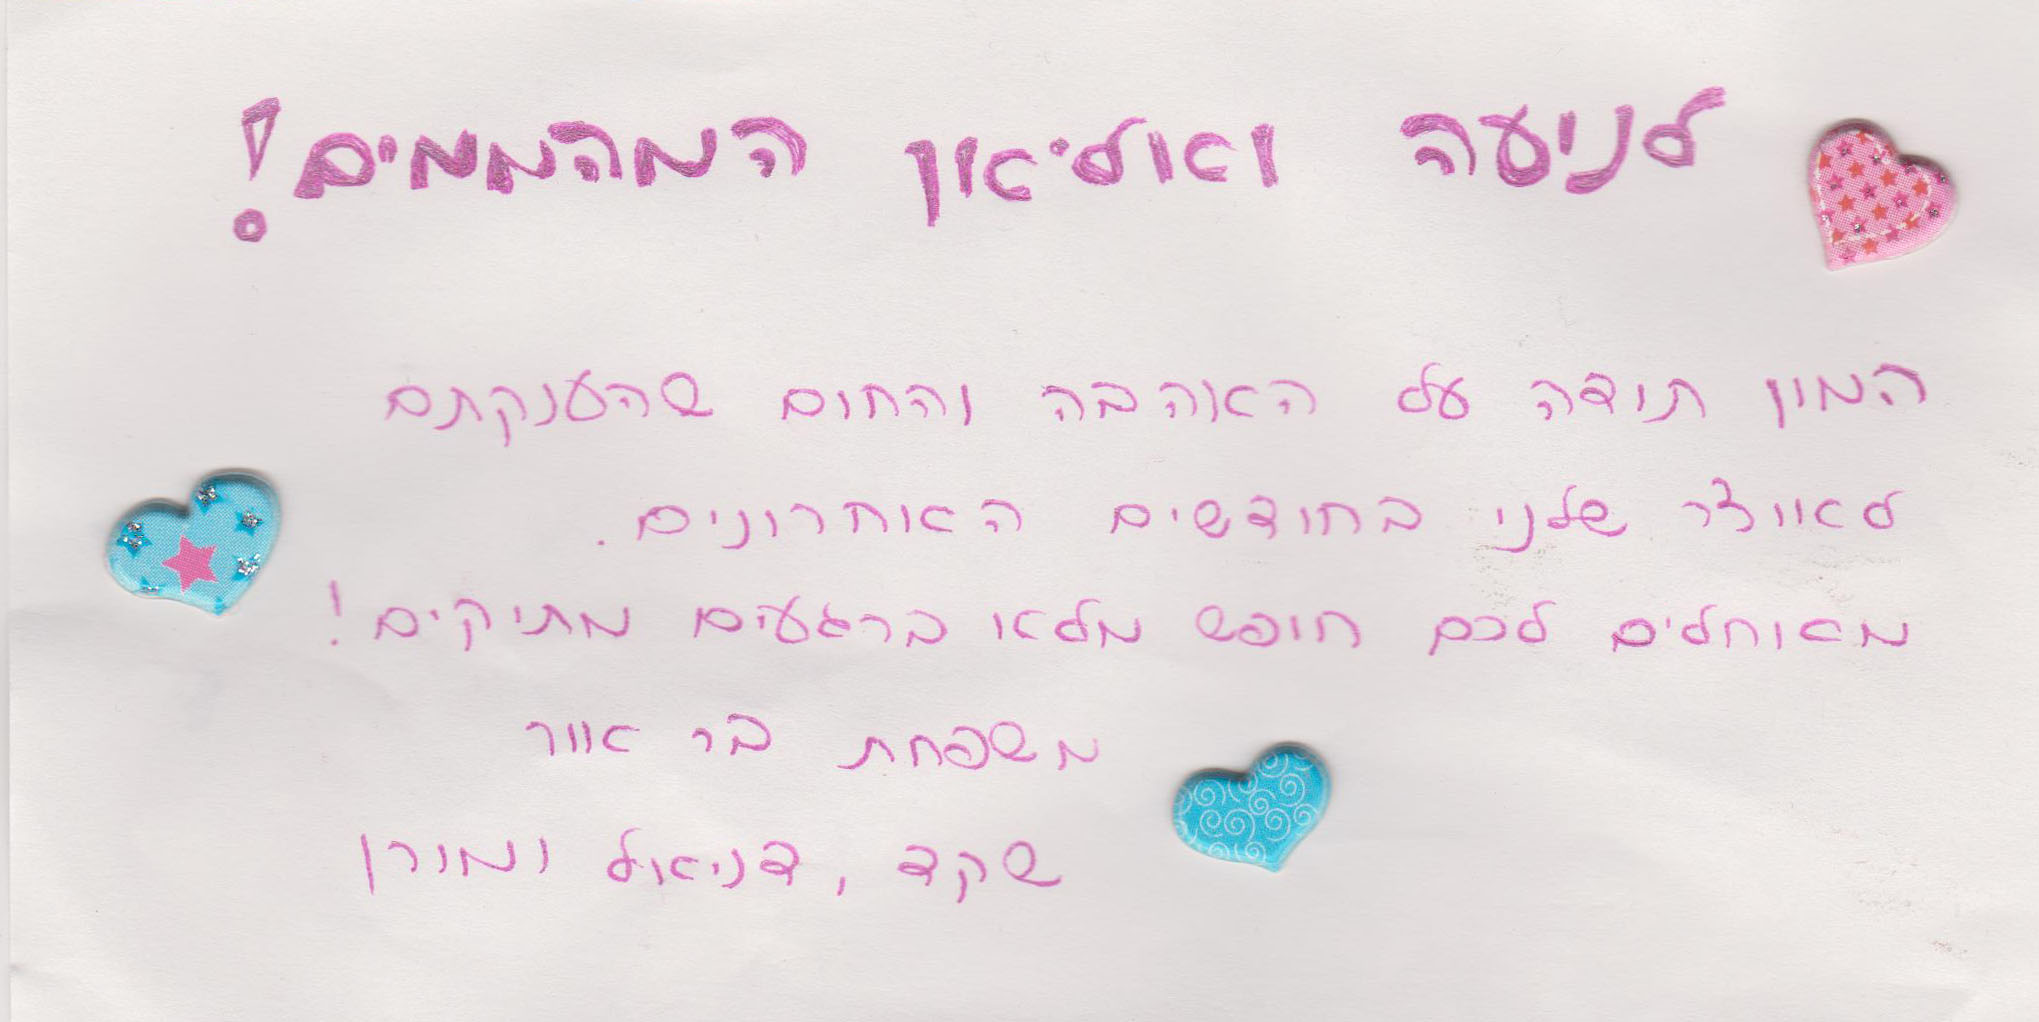 לנועה ואליאן המהממים!
המון תודה על האהבה והחום שהענקתם
לאוצר שלנו בחודשים האחרונים.
מאחלים לכם חופש מלא ברגעים מתוקים!
משפחת בר אור
שקד, דניאל ומורן